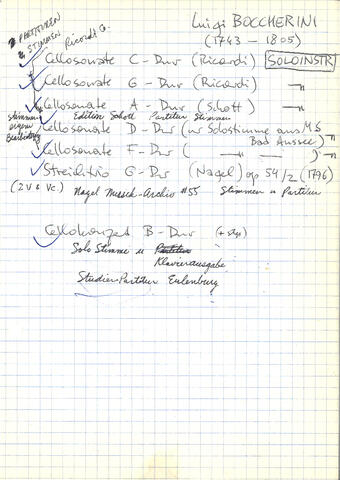 Luigi BOCCHERINI
(1743 - 1805)
PARTITUREN
u STIMMEN Ricordi G.
Cellosonate C-Dur (Ricardi) SOLOINSTR
Cellosonate G-Dur (Ricardi) — " —
Cellosonate A-Dur (Schott) — " —
Edition Schott Partitur Stimmen
Stimmen eigene Bearbeitung
Cellosonate D-Dur (nur Solostimme aus MS
Bad Aussee) — " —
Cellosonate F-Dur ( — " — " — ) — " —
Streichtrio G-Dur (Nagel) op 54/2 (1796)
(2V & Vc.) Nagel Musik-Archiv #55 Stimmen u Partitur
Cellokonzert B-Dur
Solo Stimme u Partitur
Klavierausgabe
Studien-Partitur Eulenburg